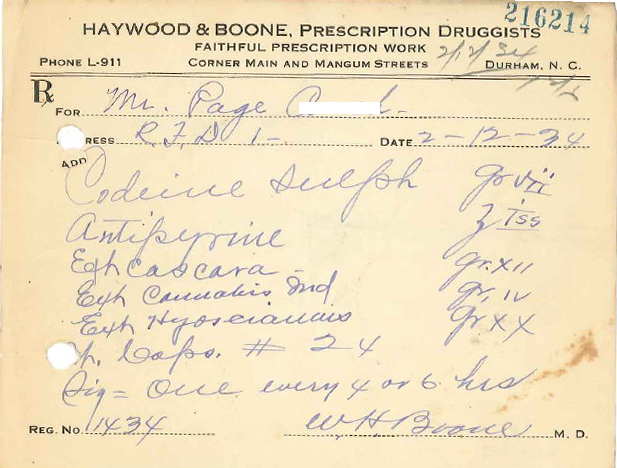 216214
HAYWOOD & BOONE, PRESCRIPTION DRUGGISTS
FAITHFUL PRESCRIPTION WORK
PHONE L-911 CORNER MAIN AND MANGUM STREETS DURHAM, N. C.
2/12/34
℞ FOR Mr. Page
RESS R.F.D 1- DATE 2-12-34
ADD
Codeine Sulph gr vii
Antipyrine ʒ iss
Ext Cascara gr. xii
Ext Cannabis Ind gr. iv
Ext Hyosciamus gr xx
Caps. # 24
Sig = One every 4 or 6 hrs
REG. No. 1434 W.H. Boone M. D.